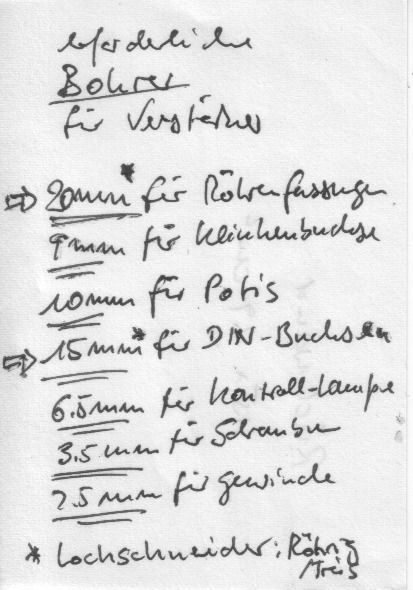 erforderliche
Bohrer
für Verstärker
⇨ 20mm* für Röhrenfassungen
9mm für Klinkenbuchse
10mm für Potis
⇨ 15mm* für DIN-Buchsen
6.5mm für Kontroll-Lampe
3.5mm für Schrauben
2.5mm für Gewinde
* Lochschneider: